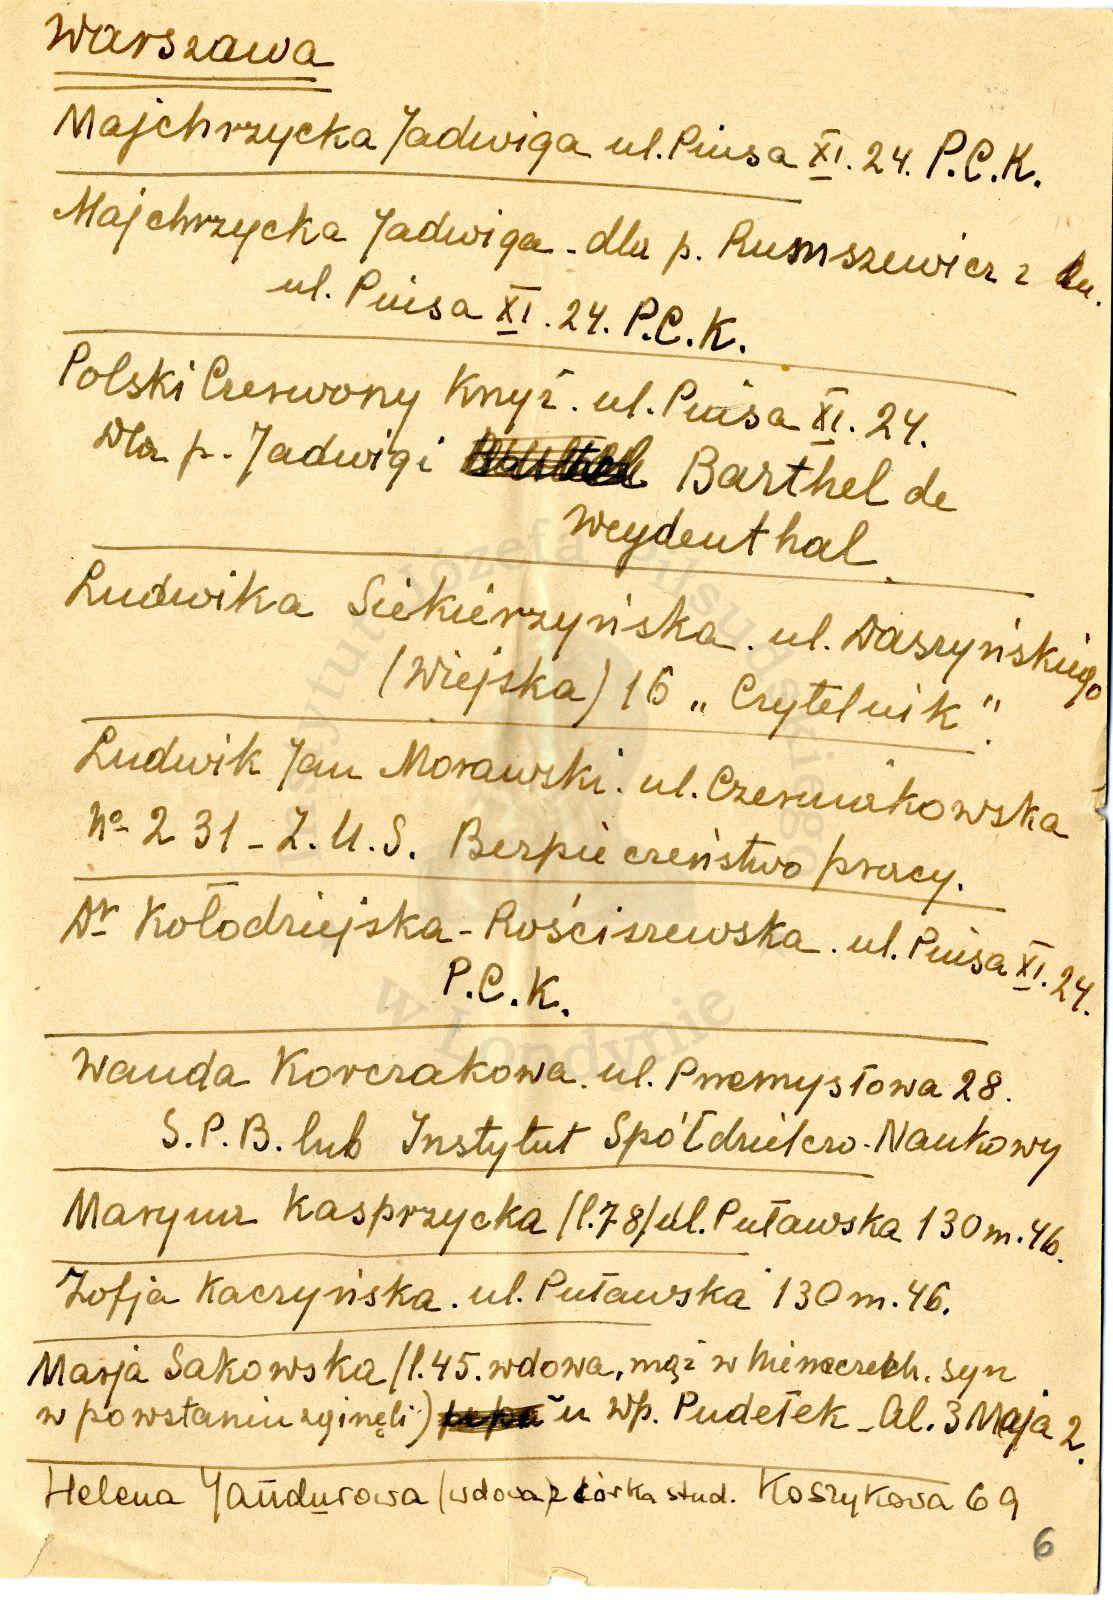 Warszawa
Majchrzycka Jadwiga ul. Piusa XI. 24. P.C.K.
Majchrzycka Jadwiga - dla p. Rumszewicz z
ul. Piusa XI. 24. P.C.K.
Polski Czerwony Krzyż. ul. Piusa XI. 24.
Dla p. Jadwigi Barthel de
Weydenthal.
Ludwika Siekierzyńska. ul. Daszyńskiego
(Wiejska) 16 „Czytelnik".
Ludwik Jan Morawski. ul. Czerniakowska
No 231 - Z.U.S. Bezpieczeństwo pracy.
Dr Kołodziejska - Rościszewska. ul. Piusa XI. 24.
P.C.K.
Wanda Korczakowa. ul. Przemysłowa 28.
S.P.B. lub Instytut Spółdzielczo-Naukowy
Maryna Kasprzycka /l.78/ ul. Puławska 130 m. 46.
Zofja Kaczyńska. ul. Puławska 130 m. 46.
Marja Sakowska /l.45. wdowa, mąż w Niemczech, syn
w powstaniu zginęli) u Wp. Pudełek - Al. 3 Maja 2.
Helena Jandurowa (wdowa z córka stud. Koszykowa 69
6
Instytut Józefa Piłsudskiego
w Londynie